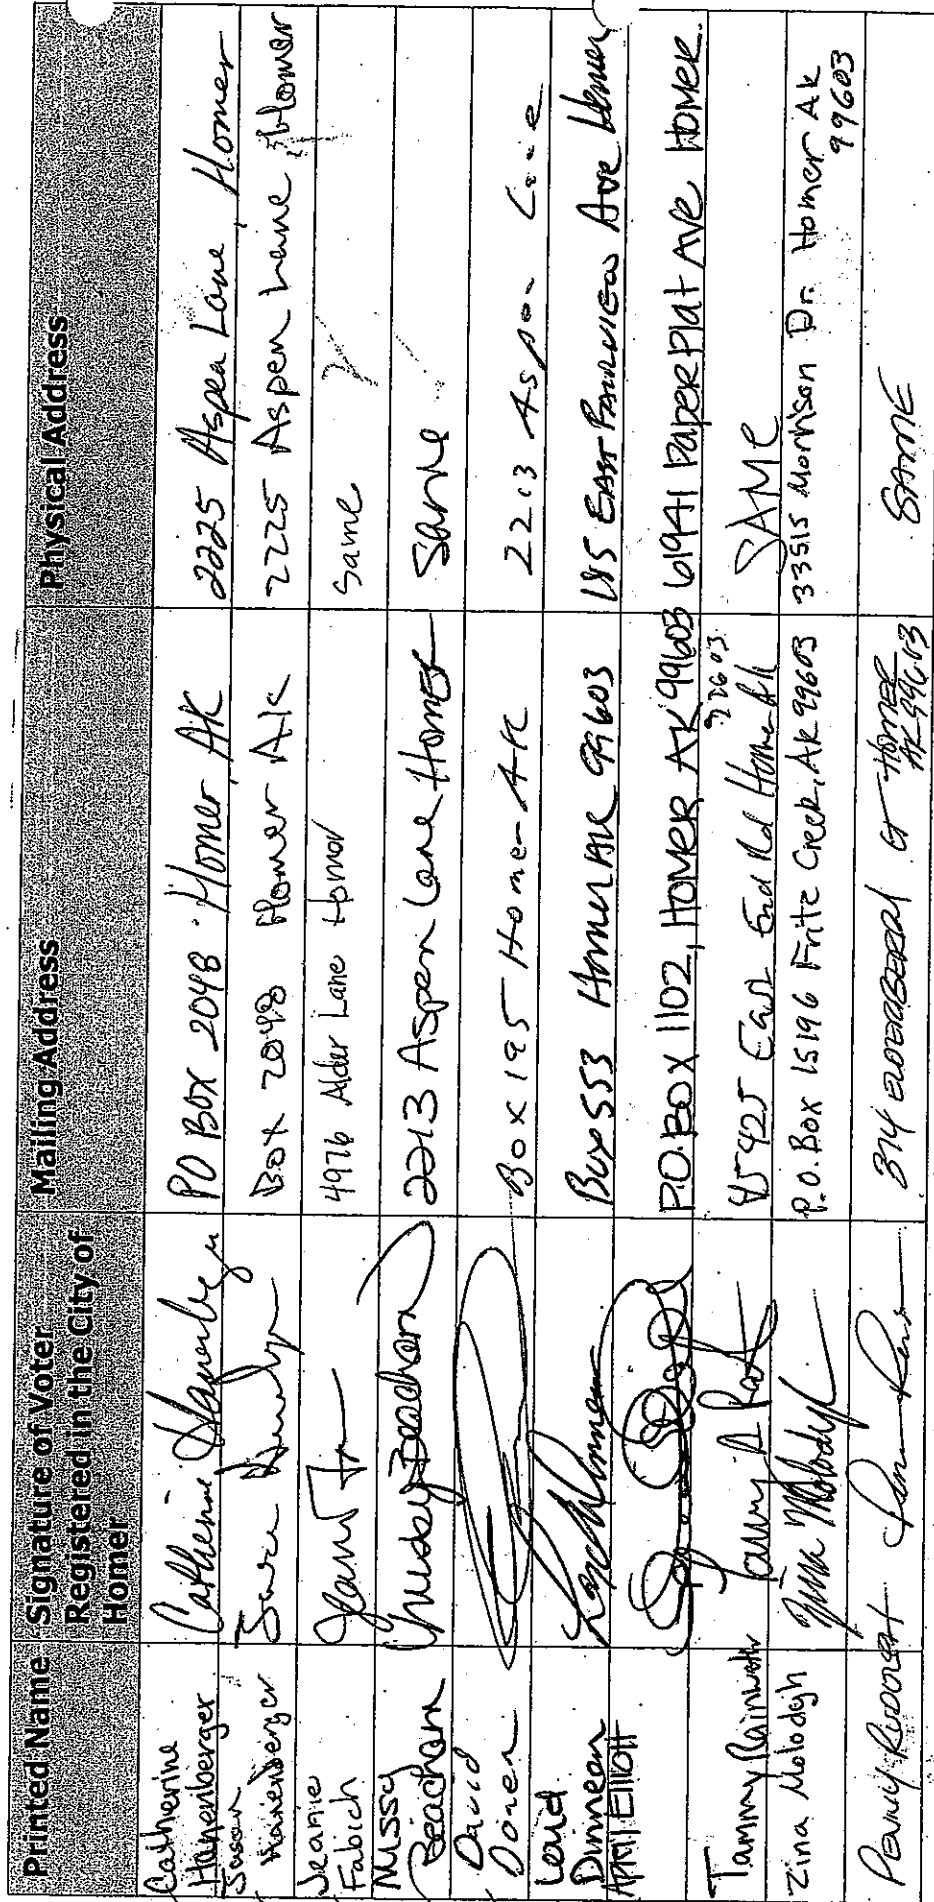 Printed Name Signature of Voter Registered in the City of Homer Mailing Address Physical Address
Catherine Hanenberger Catherine Hanenberger PO Box 2048 Homer AK 2225 Aspen Lane, Homer
Susan Hanenberger Box 2048 Homer AK 2225 Aspen Lane, Homer
Jeanie Fabich 4976 Alder Lane Homer Same
Missy Beacham Missy Beacham 2213 Aspen Lane Homer Same
David Box 195 Homer AK 2213 Aspen
Dunnean Box 553 Homer AK 99603 185 EAST FAIRVIEW Ave Homer
April Elliott P.O. BOX 1102, HOMER AK 99603 61941 PaperPlat Ave HOMER
Tammy East End Rd Homer AK SAME
Zina Molodyh Zina Molodyh P.O. Box 15196 Fritz Creek, AK 99603 33515 Morrison Dr. Homer Ak 99603
314 ELDERBERRY CT HOMER AK 99603 SAME